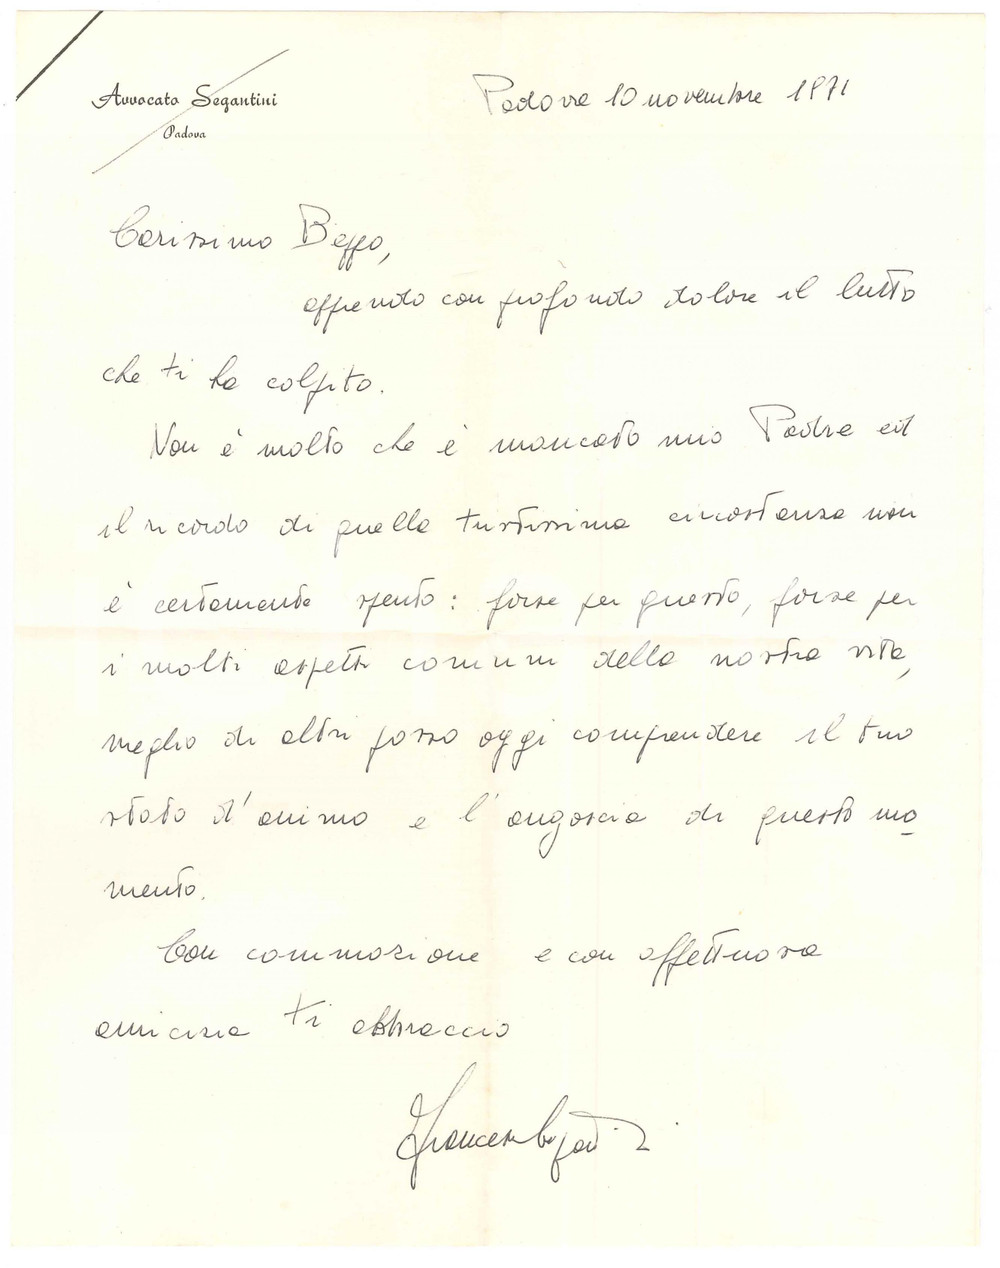 Avvocato Segantini
Padova
Padova 10 novembre 1971
Carissimo Beppo,
apprendo con profondo dolore il lutto
che ti ha colpito.
Non è molto che è mancato mio Padre ed
il ricordo di quella tristissima circostanza non
è certamente spento: forse per questo, forse per
i molti aspetti comuni della nostra vita,
meglio di altri posso oggi comprendere il tuo
stato d'animo e l'angoscia di questo mo
mento.
Con commozione e con affettuosa
amicizia ti abbraccio